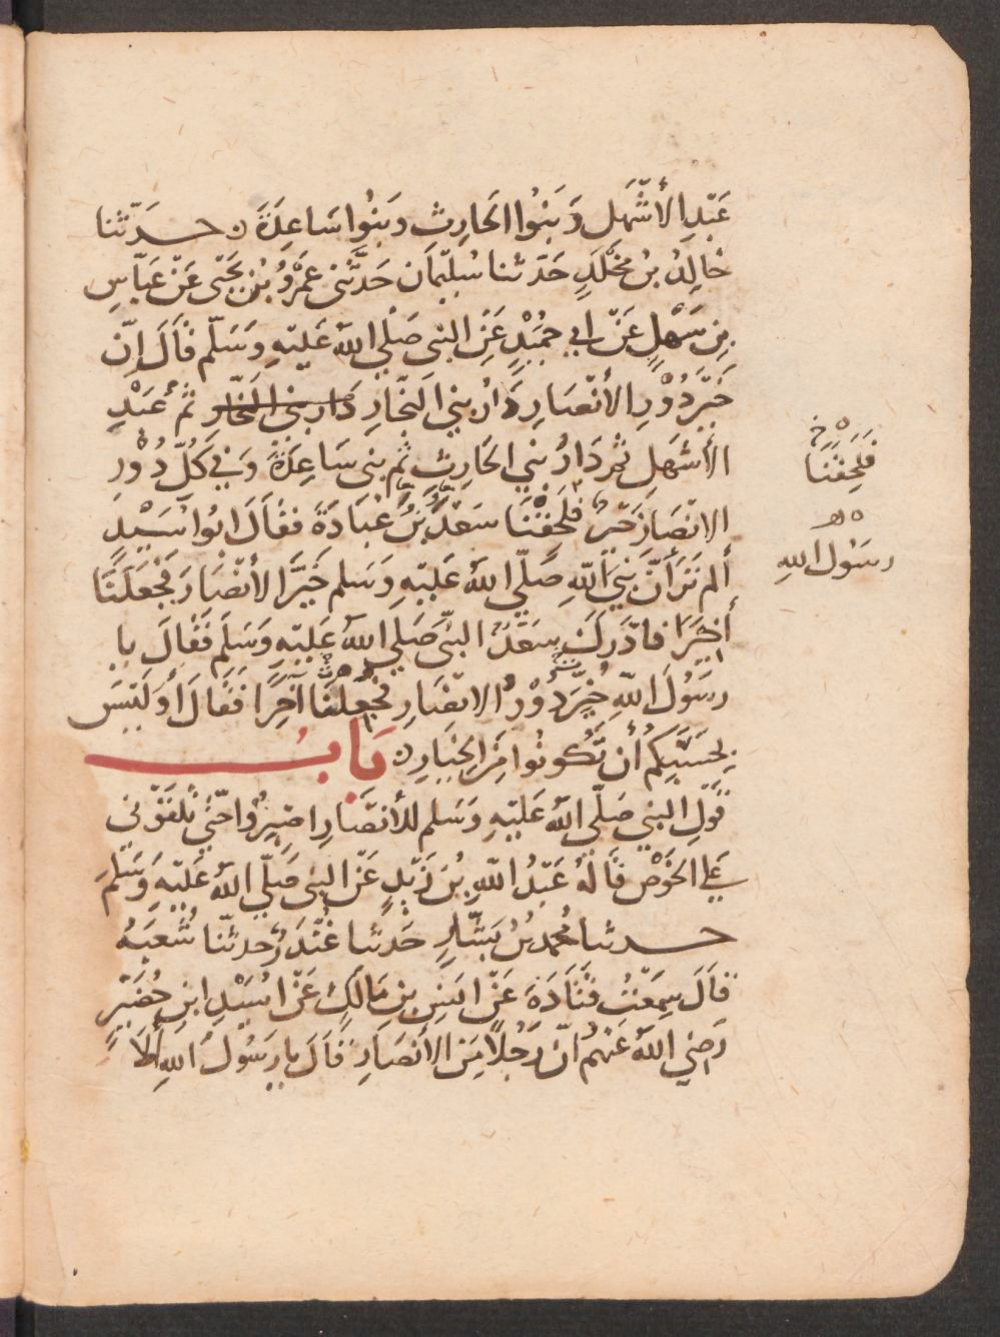 عَبْدِ الأَشْهَل وَبَنُوا الحَارِث وَبَنُوا سَاعِدَةَ ن حـدَّثنا
خَالِدُ بنُ مَخْلَدٍ حَدّثنا سُلَيْمَان حَدَّثَنى عَمْرُو بْنُ يَحْيَى عَنْ عَبَّاسِ
بنِ سَهْلٍ عَنْ ابي حُمَيْدٍ عَنِ النبى صَلَّى اللهُ عَلَيْهِ وَسَلّم قَالَ إِنَّ
خَيْرَ دُوْرِ الأَنْصَارِ دَارُ بَنِي النَّجَّارِ دار بنى النجار ثُمَّ عَبْدِ
الأَشْهَل ثُمَّ دَارُ بَنِي الحَارِثِ ثُمّ بنى سَاعِدَةَ وَفي كُلّ دُوْرِ
الانْصَارِ خَيْرٌ فَلَحِقْنَا سَعْدُ بْنُ عُبَادَةَ فَقَالَ ابُوا سَيْدٍ
أَلم تَرَ أَنَّ نَبِيَّ اللهِ صَلّي اللهُ عَلَيْهِ وَسَلم خَيَّرَ الأَنْصَارَ فَجَعَلَنَا
أَخِيْرًا فَادْرَكَ سَعْدٌ النبيَّ صَلي اللهُ عَلَيْهِ وَسَلَم فَقَالَ يا
رسَوُلَ اللهِ خُيِّرَ دُوْرُ الانْصَارِ فَجُعِلْنَا آخِرًا فَقَالَ أَوَلَيْسَ
بِحَسْبِكُمْ أَن تَكُونُوا مِنَ الخِيَارِ ن بَابُ
قَوْلِ النبي صَلّى اللهُ عَلَيْهِ وَسَلم للأَنصَارِ اصْبِرُوا حَتّى تَلقَوْنِي
عَلي الحَوْضِ قَالَهُ عَبْدُ اللهِ بْنُ زَيْدٍ عَنْ النبى صَلّي اللهُ عَلَيْهِ وَسَلمَ
حـدثنا مُحمد بنُ بَشَّارٍ حَدثنا غُنْدَرٌ حدثنا شُعْبَةُ
قَالَ سَمِعْتُ قَتَادَةَ عَنْ انَسِ بنِ مَالِكٍ عَنْ اسَيْدِ ابنِ حُضَيْرٍ
رَضِي اللهُ عَنْهُمْ انّ رَجُلًا مِنَ الأَنْصَارِ قَالَ يا رَسُوْلَ اللهِ أَلَا
فَلَحِقَنَا
رسَوُل اللهِ